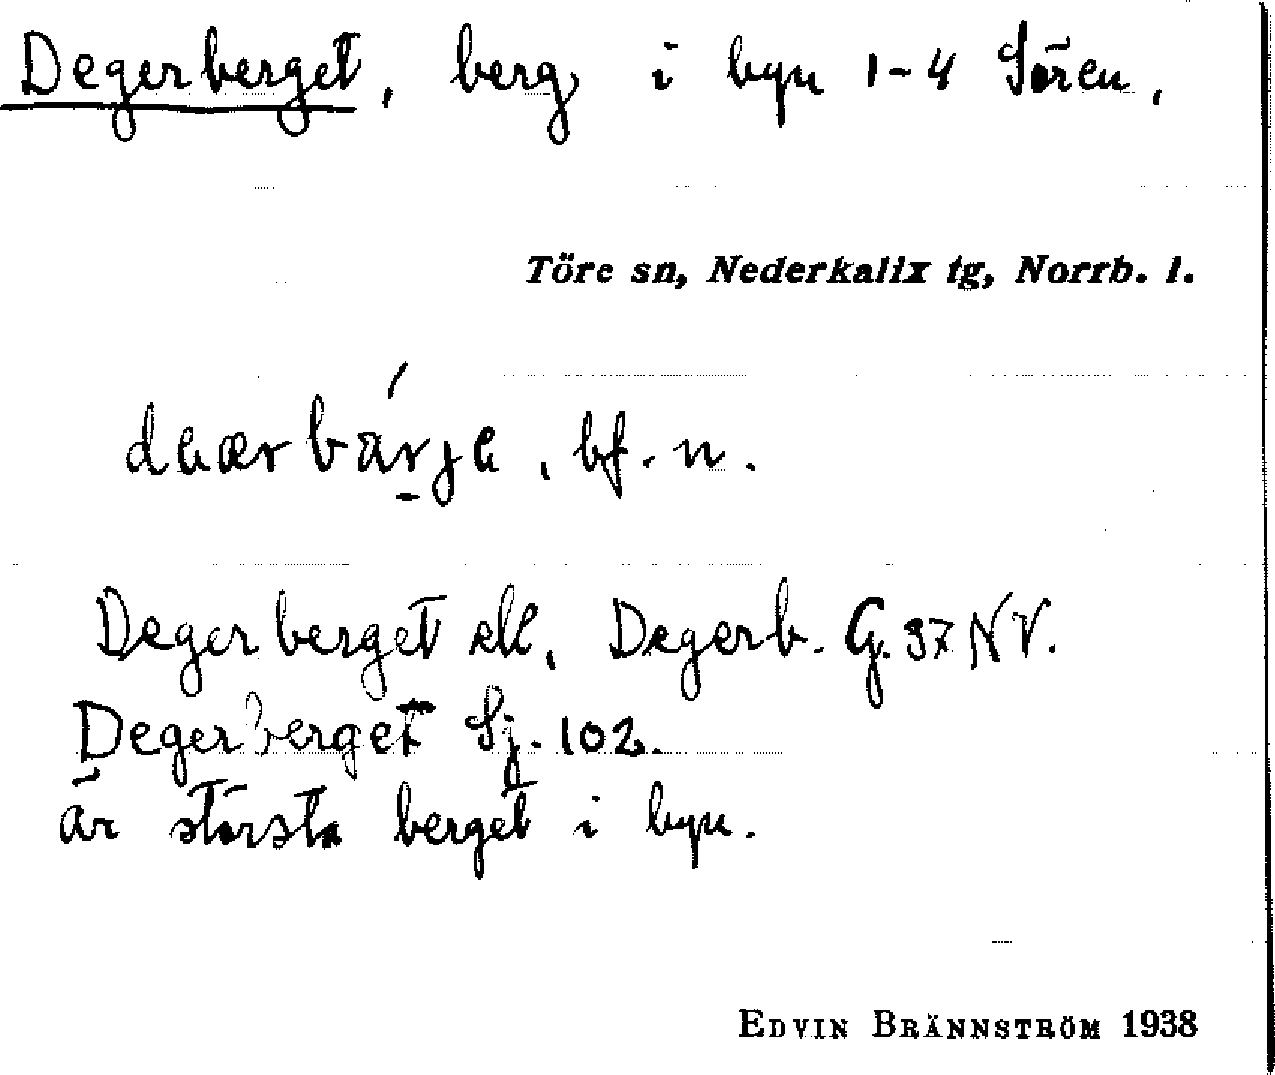 Degerberget, berg i byn 1-4 Sören,
Töre sn, Nederkalix tg, Norrb. l.
bf. n.
Degerberget ell. Degerb. G. 37 NV.
Degerberget Sj. 102.
är största berget i byn.
EDVIN BRÄNNSTRÖM 1938